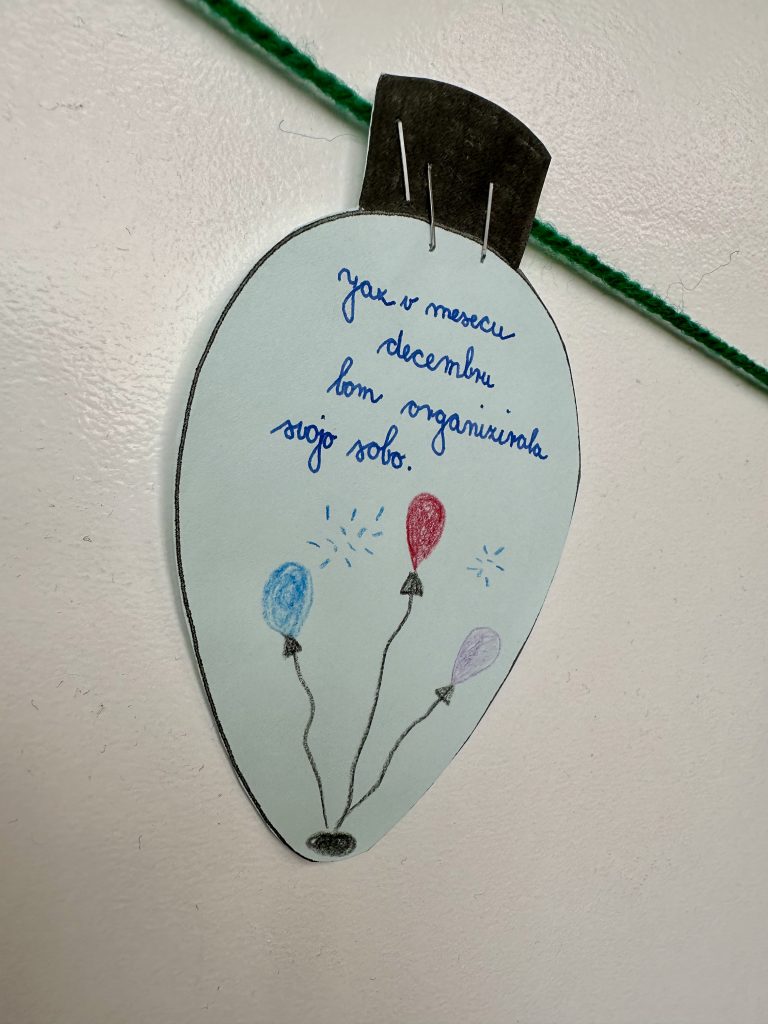 Jaz v mesecu
decembru
bom organizirala
svojo sobo.